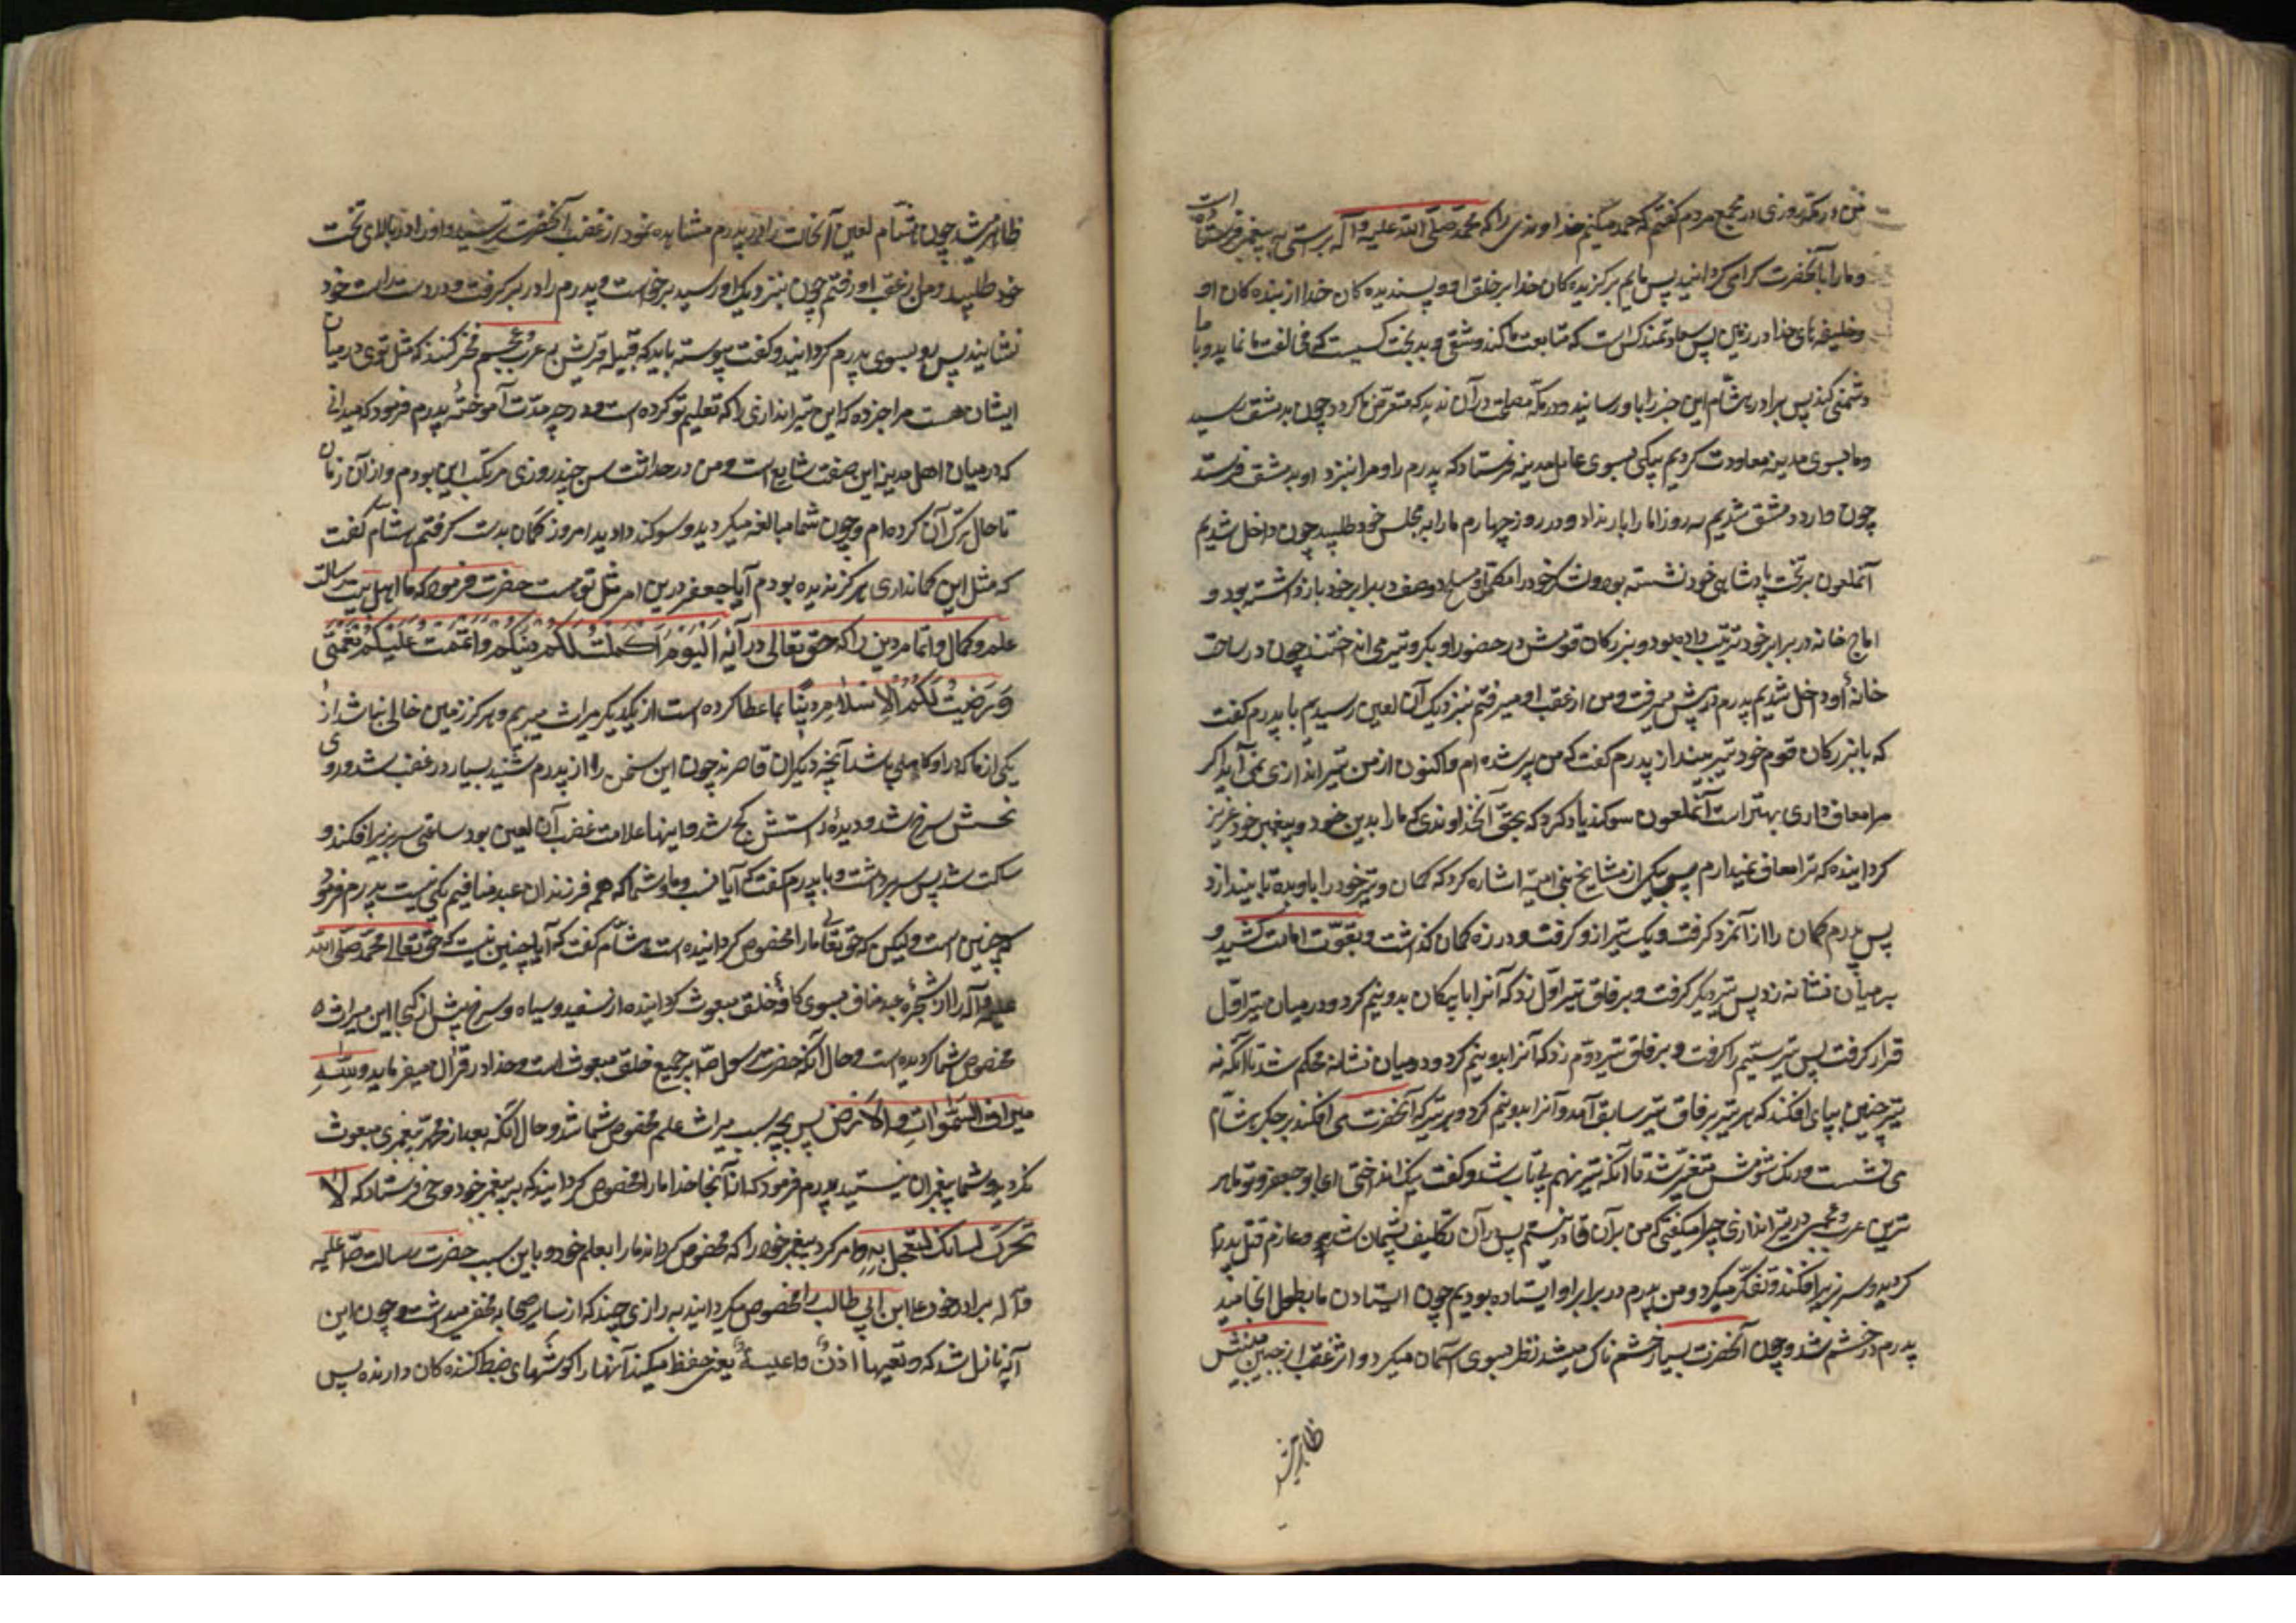 من در مکه روزی در مجمع مردم گفتم که حمد میکنم خداوندی را که محمد صلّی الله علیه وآله براستی به پیغمبری فرستاده است
و ما را بآنحضرت گرامی گردانید پس مائیم برگزیده کان خدا بر خلق او و پسندیده کان خدا از بنده کان او
و خلیفه های خدا در زمین پس سعادتمند کسی است که متابعت ما کند و شقی و بدبخت کسیست که مخالفت ما نماید و با ما
دشمنی کند پس برادر هشام این خبر را باو رسانید و در مکّه مصلحت در آن ندید که متعرّض ما گردد چون بدمشق رسید
و ما بسوی مدینه معاودت کردیم پیکی بسوی عامل مدینه فرستاد که پدرم را و مرا بنزد او بدمشق فرستد
چون وارد دمشق شدیم سه روز ما را بار نداد و در روز چهارم ما را به مجلس خود طلبید چون داخل شدیم
آنملعون بر تخت پادشاهی خود نشسته بود و لشکر خود را مکمّل و مسلّح دو صف در برابر خود بازداشته بود و
اماج خانه در برابر خود ترتیب داده بود و بزرکان قومش در حضور او بگرو تیر می انداختند چون در ساحت
خانهٔ او داخل شدیم پدرم در پیش میرفت و من از عقب او میرفتم بنزدیک آن لعین رسیدیم با پدرم گفت
که با بزرکان قوم خود تیر بینداز پدرم گفت که من پیر شده ام و اکنون از من تیراندازی نمی آید اگر
مرا معاف داری بهتر است آنملعون سوگند یاد کرد که بحقّ آنخداوندی که ما را بدین خود و پیغمبر خود عزیز
گردانیده که ترا معاف نمیدارم پس بیکی از مشایخ بنی امیّه اشاره کرد که کمان و تیر خود را باو بده تا بیندازد
پس پدرم کمان را از آنمرد گرفت و یک تیر از و گرفت و در زه کمان گذاشت و بقوّت امامت کشید و
بر میان نشانه زد پس تیر دیگر گرفت و بر فاق تیر اوّل زد که آنرا با پیکان بدو نیم کرد و در میان تیر اوّل
قرار گرفت پس تیر سیّم را گرفت و بر فاق تیر دوّم زد که آنرا بدو نیم کرد و در میان نشانه محکم شد تا آنکه نه
تیر چنین پیاپی افکند که هر تیر بر فاق تیر سابق آمد و آنرا بدو نیم کرد و هر تیر که آنحضرت می افکند بر جگر هشام
می نشست و رنگ شومش متغیّر شد تا آنکه در تیر نهم بی تاب شد و گفت نیک انداختی ای ابو جعفر و تو ماهر
ترین عرب و عجمی در تیراندازی چرا میگفتی که من بر آن قادر نیستم پس از آن تکلیف پشیمان شد و عازم قتل پدرم
گردید و سر بزیر افکند و تفکّر میکرد و من و پدرم در برابر او ایستاده بودیم چون ایستادن ما بطول انجامید
پدرم در خشم شد و چون آنحضرت بسیار خشم ناک میشد نظر بسوی آسمان میکرد و اثر غضب از جبین مبینش
ظاهر میشد
ظاهر میشد چون هشام لعین آنحالت را در پدرم مشاهده نمود از غضب آنحضرت ترسید و او را در بالای تخت
خود طلبید و من از عقب او رفتم چون بنزدیک او رسید برخواست و پدرم را در بر گرفت و در دست راست خود
نشانید پس رو بسوی پدرم گردانید و گفت پیوسته باید که قبیله قریش بر عرب و عجم فخر کنند که مثل توی در میان
ایشان هست مرا خبر ده که این تیراندازی را که تعلیم تو کرده است و در چه مدّت آموختهٔ پدرم فرمود که میدانی
که در میان اهل مدینه این صنعت شایع است و من در حداثت سن چند روزی مرتکب این بودم و از آن زمان
تا حال ترک آن کرده ام و چون شما مبالغه میکردید و سوگند دادید امروز کمان بدست گرفتم هشام گفت
که مثل این کمانداری هرگز ندیده بودم آیا جعفر درین امر مثل توست حضرت فرمود که ما اهل بیت رسالت
علم و کمال و اتمام دین را که حق تعالی در آیه اَلْیَوْمَ اَکْمَلْتُ لَکُمْ دینَکُمْ وَاَتْمَمْتُ عَلَیْکُمْ نِعْمَتی
وَرَضیتُ لَکُمُ الْاِسْلامَ دینًا بما عطا کرده است از یکدیگر میراث میبریم و هرگز زمین خالی نمیباشد از
یکی از ما که در او کامل باشد آنچه دیگران قاصرند چون این سخن را از پدرم شنید بسیار در غضب شد و روی
نحسش سرخ شد و دیدهٔ راستش کج شد و اینها علامت غضب آن لعین بود ساعتی سر بزیر افکند و
ساکت شد پس سر برداشت و با پدرم گفت که آیا نسب ما و شما که همه فرزندان عبد منافیم یکی نیست پدرم فرمود
که چنین است ولیکن که حق تعالی ما را مخصوص گردانیده است هشام گفت که آیا چنین نیست که حق تعالی محمد صلی الله
علیه وآله را از شجرهٔ عبد مناف بسوی کافهٔ خلق مبعوث گردانیده از سفید و سیاه و سرخ پس از کجا این میراث
مخصوص شما گردیده است و حال آنکه حضرت رسول ص بر جمیع خلق مبعوث است و خدا در قرآن میفرماید وَ لِلّٰهِ
میراث السَّمٰوَاتِ وَ الْاَرْضِ پس بچه سبب میراث علم مخصوص شما شد و حال آنکه بعد از محمد پیغمبری مبعوث
نگردید و شما پیغمبران نیستید پدرم فرمود که از آنجا خدا ما را مخصوص گردانید که بر پیغمبر خود وحی فرستاد که لا
تحرّک لسانک لتعجل به و امر کرد پیغمبر خود را که مخصوص گرداند ما را بعلم خود و باین سبب حضرت رسالت ص علیه
وآله برادر خود علی ابن ابی طالب را مخصوص میگردانید به رازی چند که از سایر صحابه مخفی میداشت و چون این
آیه نازل شد که و تعیها اذنٌ واعیةٌ یعنی حفظ میکند آنها را گوشهای ضبط کننده کان دارنده پس